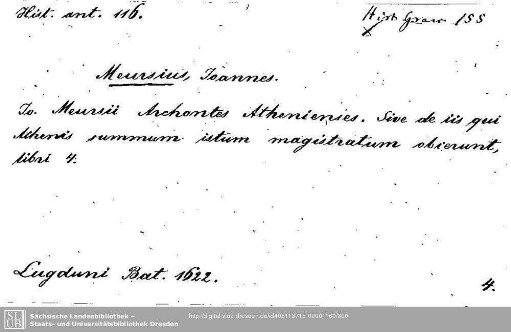 Hist. ant. 116.
Hist. Graec. 155
Meursius, Joannes.
Jo. Meursii Archontes Athenienses. Sive de iis qui
Athenis summum istum magistratum obierunt,
libri 4.
Lugduni Bat. 1622.
4.
SLUB
Sächsische Landesbibliothek –
Staats- und Universitätsbibliothek Dresden